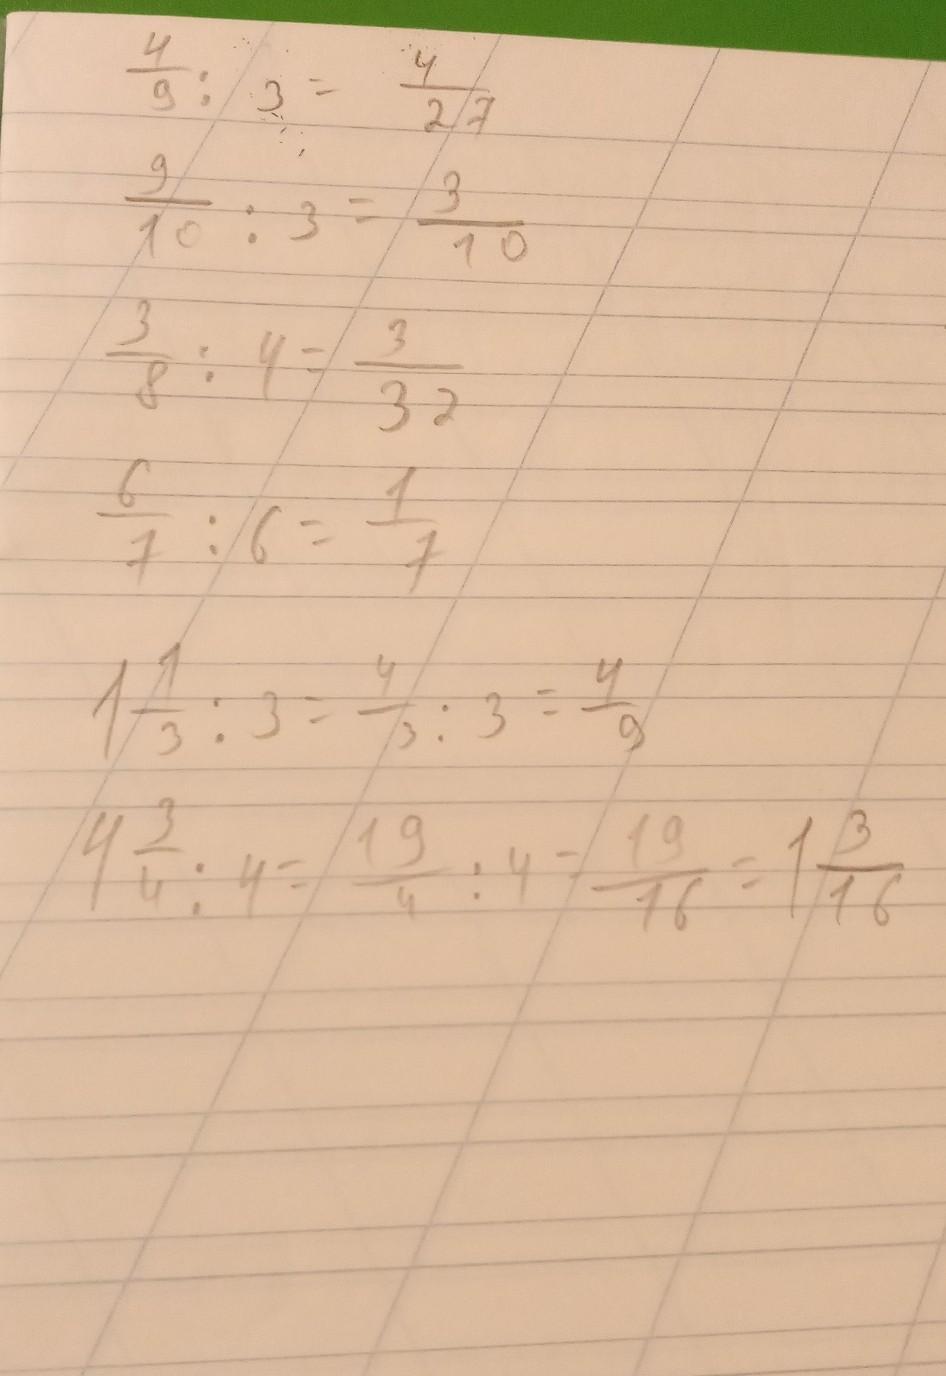 4/9 : 3 = 4/27
9/10 : 3 = 3/10
3/8 : 4 = 3/32
6/7 : 6 = 1/7
1 1/3 : 3 = 4/3 : 3 = 4/9
4 3/4 : 4 = 19/4 : 4 = 19/16 = 1 3/16